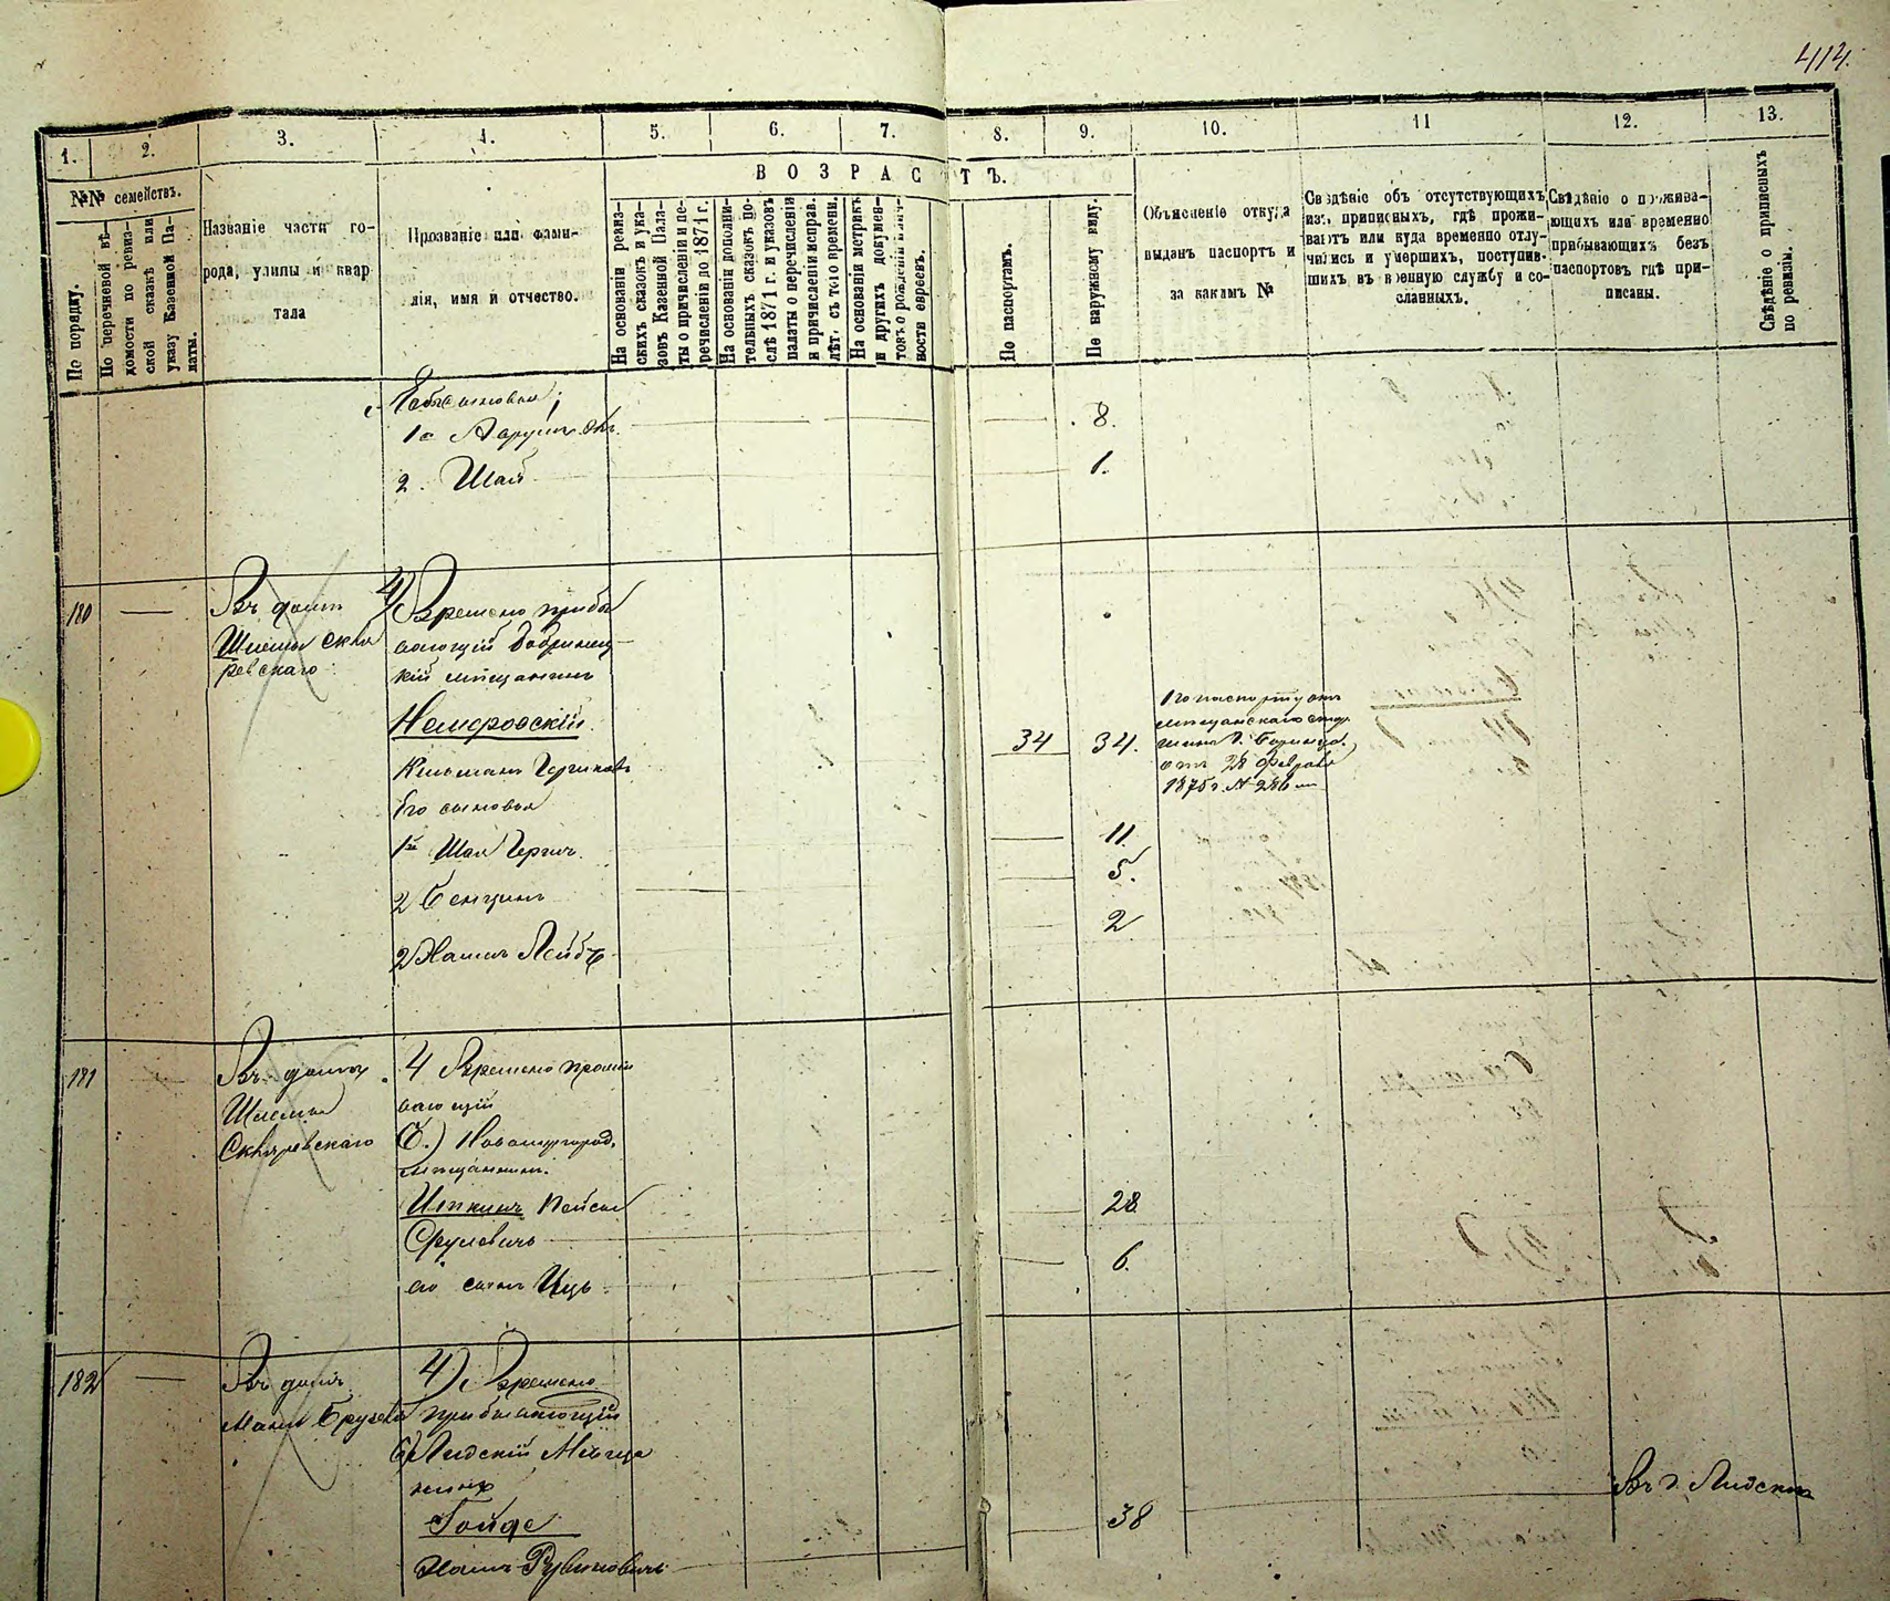 414.
1.
2.
3.
4.
5.
6.
7.
8.
9.
10.
11
12.
13.
№№ семействъ.
ВОЗРАСТЪ.
По порядку.
По перечневой вѣ-
домости по ревиз-
ской сказкѣ или
указу Казенной Па-
латы.
Названіе части го-
рода, улицы и квар
тала
Прозваніе или фами-
лія, имя и отчество.
На основаніи ревиз-
скихъ сказокъ и ука-
зовъ Казенной Пала-
ты о причисленіи и пе-
речисленіи до 1871 г.
На основаніи дополни-
тельныхъ сказокъ по-
слѣ 1871 г. и указовъ
палаты о перечисленіи
и причисленіи исправ.
лѣт. съ того времени.
На основаніи метрикъ
и других докумен-
товъ о рожденіи
ности евреевъ.
По паспортамъ.
По наружному виду.
Объясненіе откуда
выданъ паспортъ и
за какимъ №
Свѣдѣніе объ отсутствующихъ
изъ приписныхъ, гдѣ прожи-
ваютъ или куда временно отлу-
чились и умершихъ, поступив-
шихъ въ военную службу и со-
сланныхъ.
Свѣдѣніе о прожива-
ющихъ или временно
прибывающихъ безъ
паспортовъ гдѣ при-
писаны.
Свѣдѣніе о приписныхъ
по ревизіи.
сыновья;
1й
8.
2. Шая
1.
180
Въ домѣ
Шлемы Скви
ревскаго
4) Времено прибы
вающій Бобринец-
кій мѣщанинъ
Немеровскій
Кельманъ
34
34.
По паспорту отъ
мѣщанскаго
отъ 28 Февраля
1875 г. № 286
Его сыновья
1й
11.
2 Бенціонъ
5.
2 Лейбъ
2
181
Въ домѣ
Шлемы
Сквиревскаго
4 Времено прожи
вающій
Б.) Новомиргород.
мѣщанинъ.
Иткинъ Пейсах
Сруловичъ
28
его сынъ Ицъ
6.
182
Въ домѣ
4) Времено
прибывающій
б) Лидскій Мѣща
нинъ
Гойде
Рувиновичъ
38
Въ г. Лидскъ